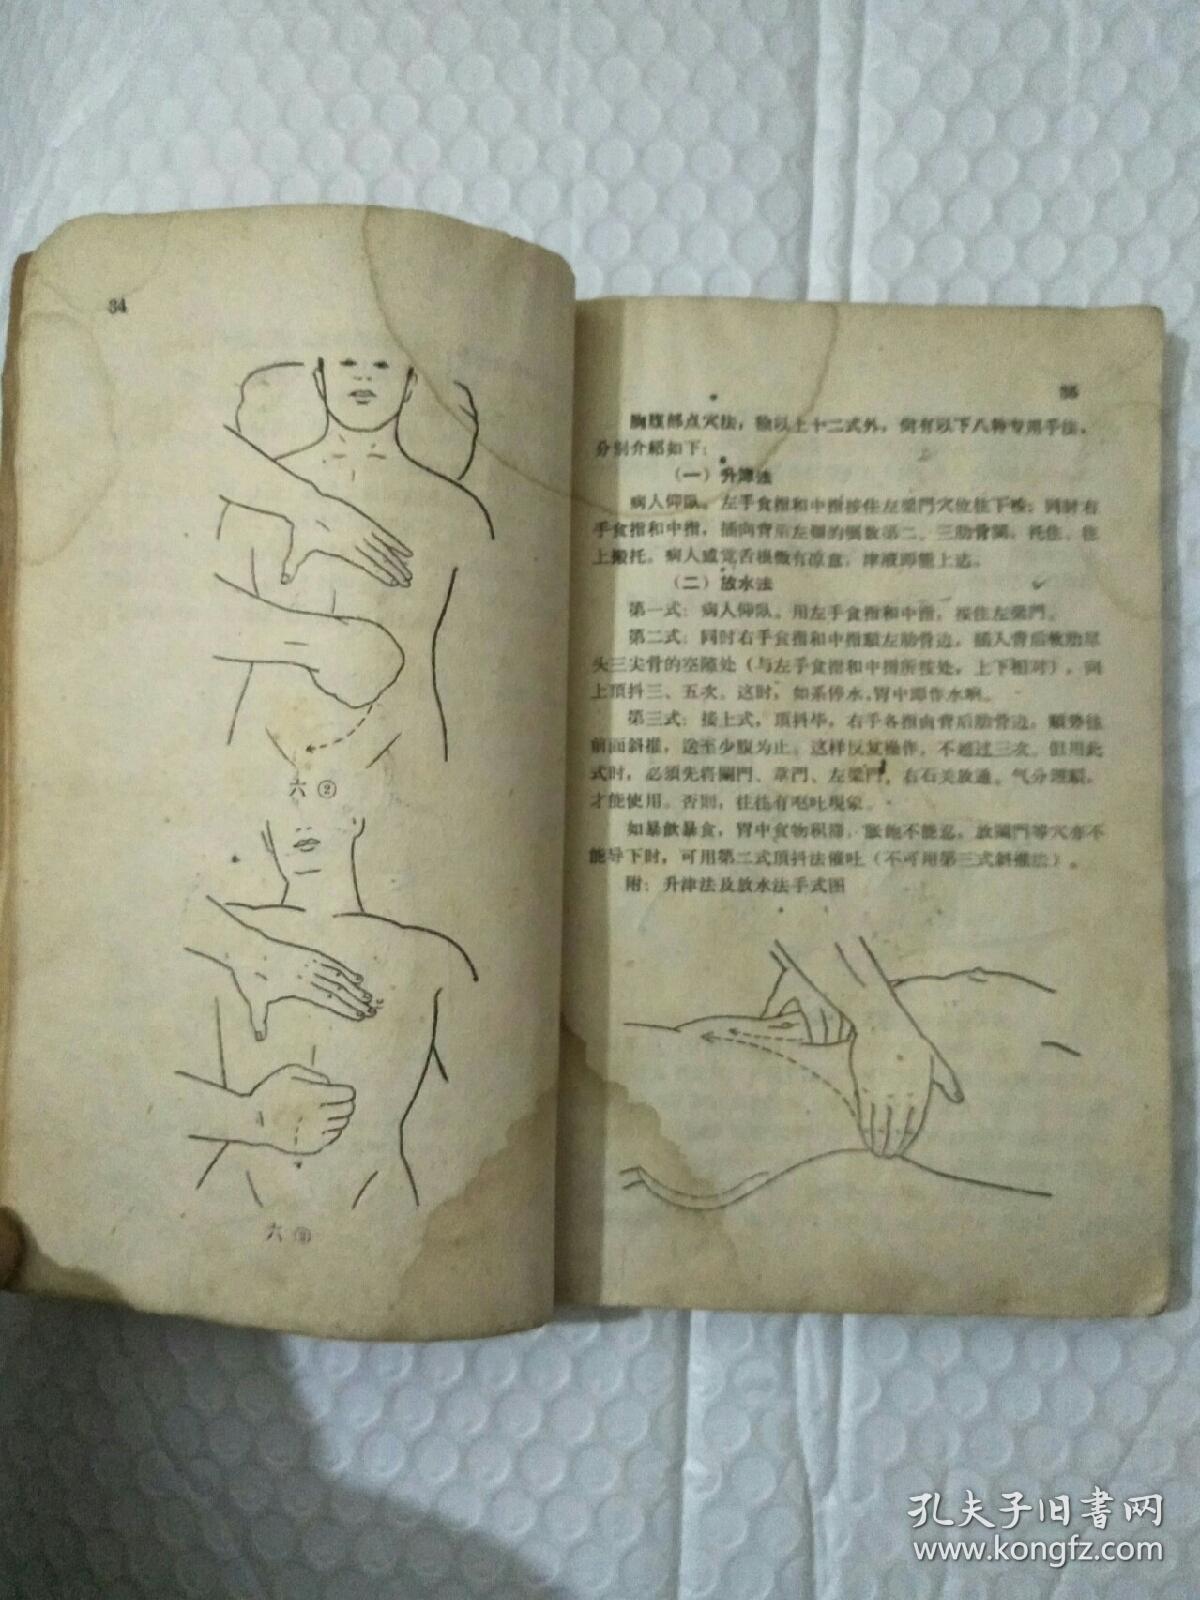 34
六 ②
六 ③
35
胸腹部点穴法，除以上十二式外，尚有以下八种专用手法，
分别介紹如下：
（一）升津法
病人仰臥。左手食指和中指按住左梁門穴位往下 同时右
手食指和中指，插向背后左 第二、三肋骨間，托住，往
上搬托。病人感觉舌根微有凉意，津液即能上达。
（二）放水法
第一式：病人仰臥。用左手食指和中指，按住左梁門。
第二式：同时右手食指和中指順左肋骨边，插入背后軟肋尽
头三尖骨的空隙处（与左手食指和中指所按处，上下相对），向
上頂抖三、五次。这时，如系停水，胃中即作水响。
第三式：接上式，頂抖毕，右手各指由背后肋骨边，順势往
前面斜推，送至少腹为止。这样反复操作，不超过三次。但用此
式时，必須先将闌門、章門、左梁門、右石关放通，气分理順，
才能使用。否則，往往有嘔吐現象。
如暴飲暴食，胃中食物积滞，脹飽不能忍，放闌門等穴亦不
能导下时，可用第二式頂抖法催吐（不可用第三式斜推法）。
附：升津法及放水法手式图
孔夫子旧書网
www.kongfz.com